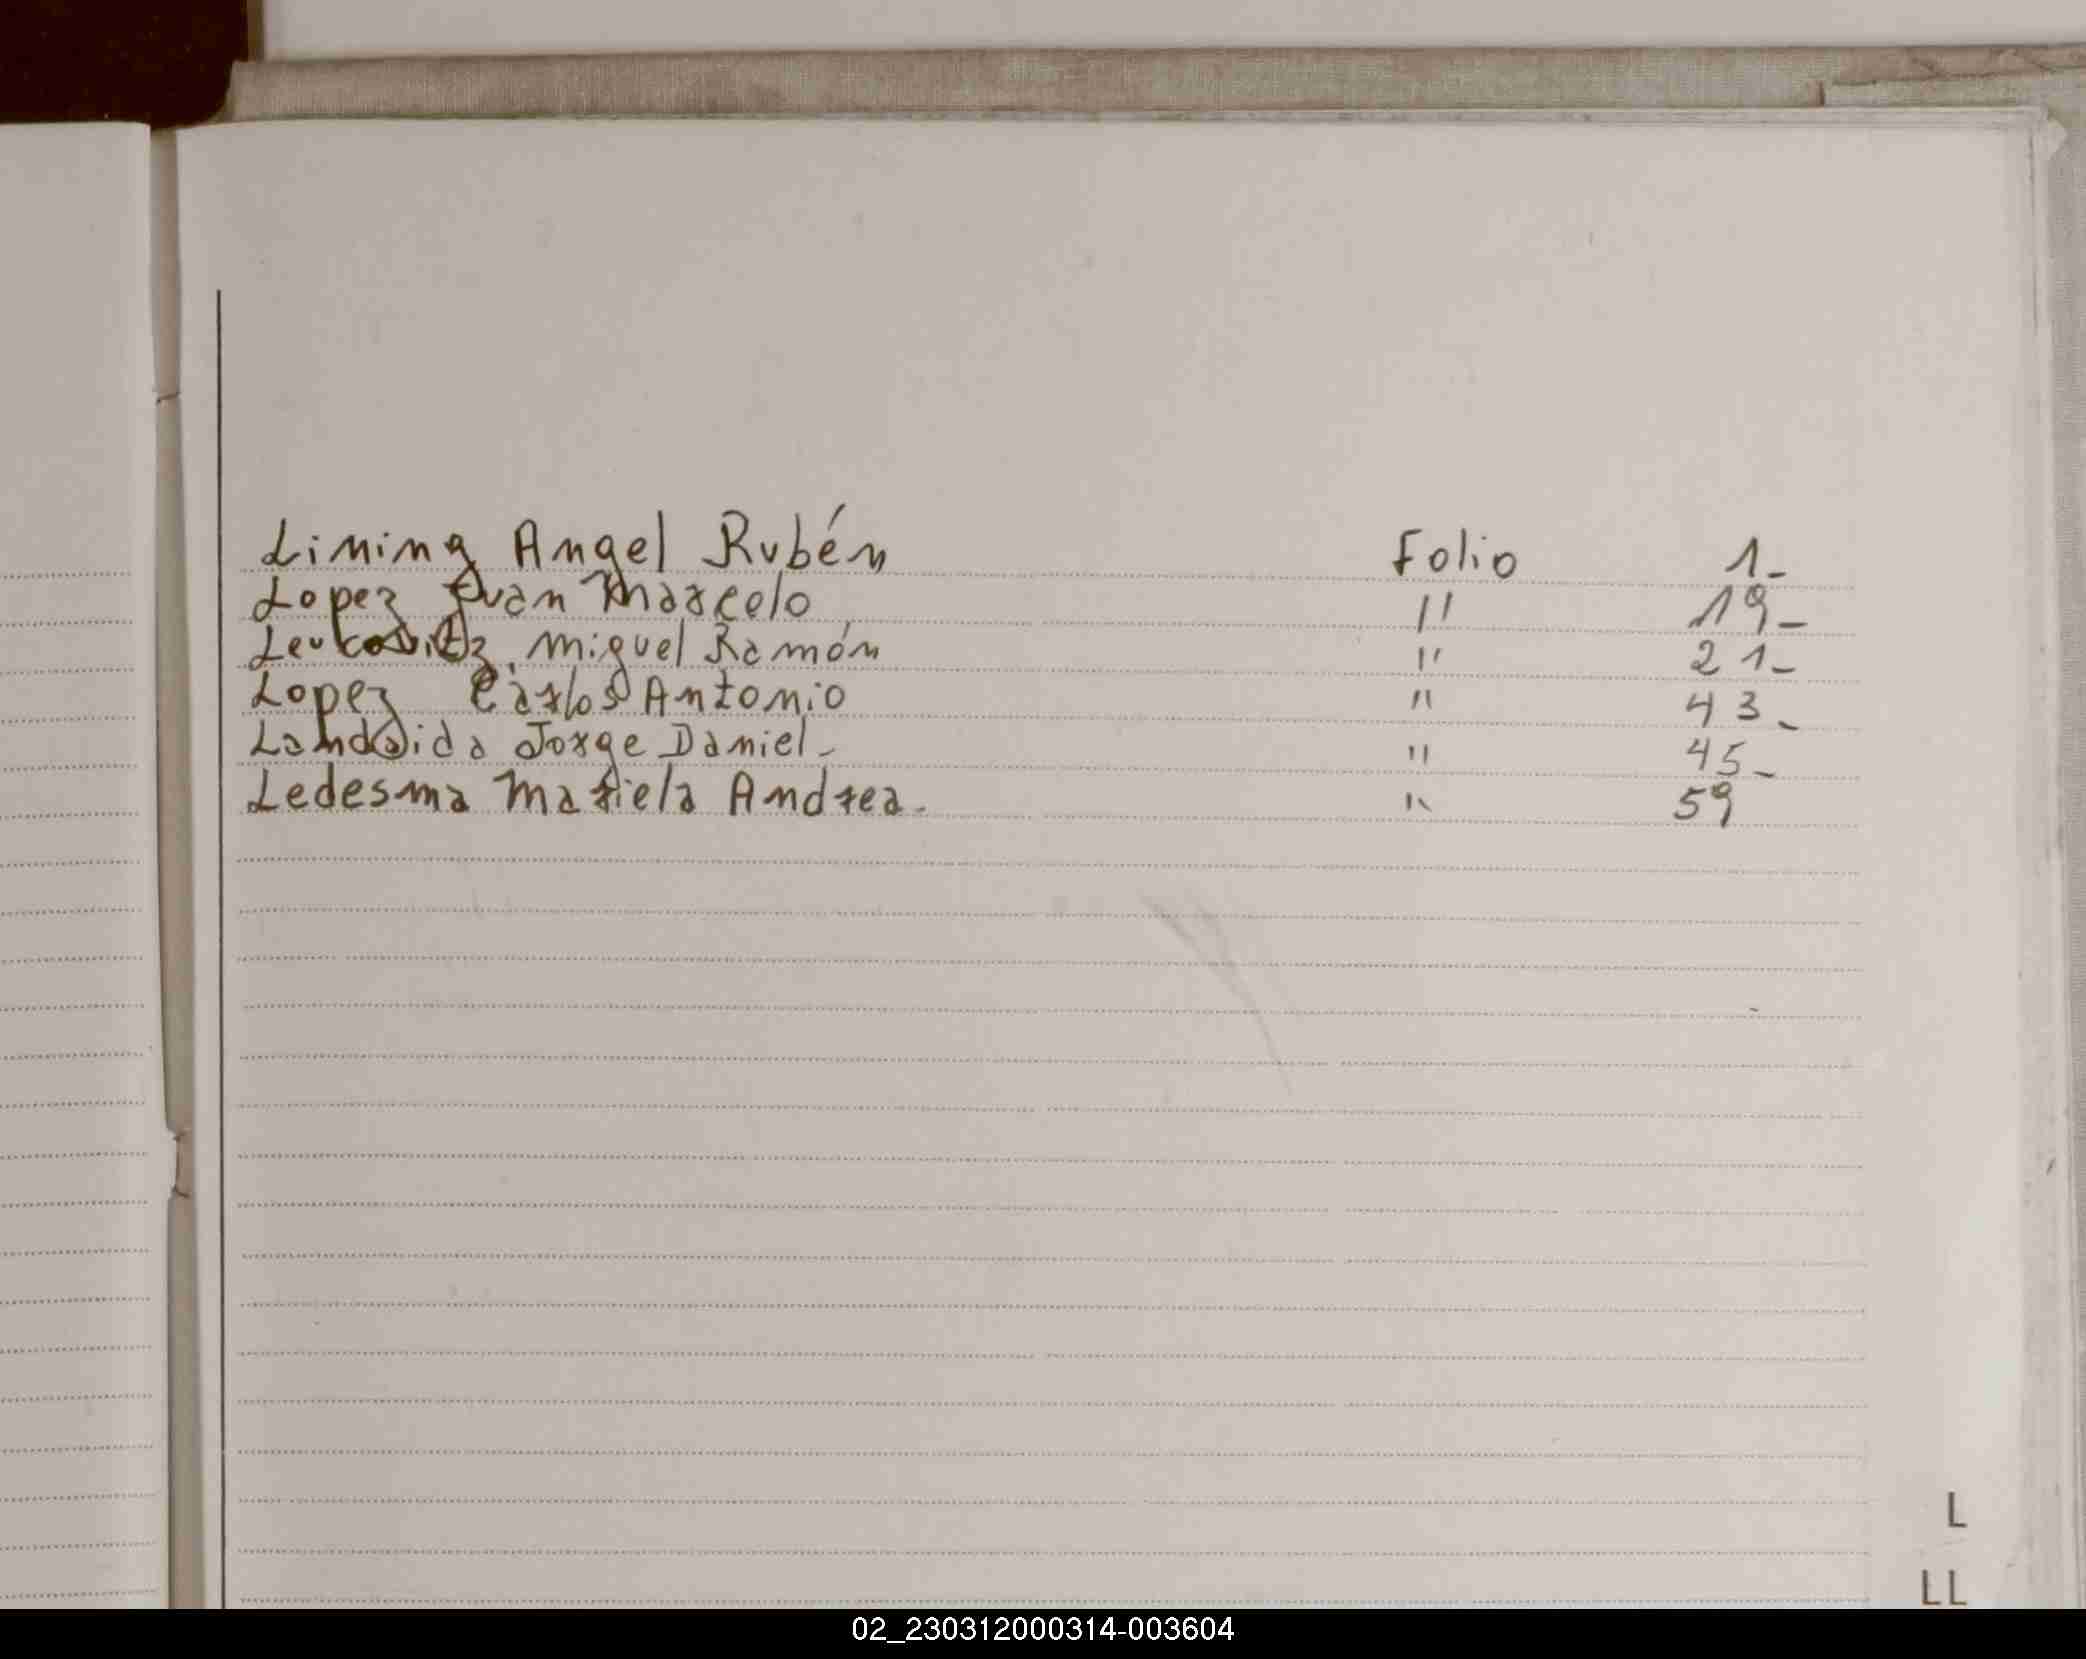 Lining Angel Rubén Folio 1-
Lopez Juan Marcelo " 19-
Leukovitz, Miguel Ramón " 21-
Lopez Carlos Antonio " 43-
Landaida Jorge Daniel- " 45-
Ledesma Mariela Andrea. " 59
L
LL
02_230312000314-003604